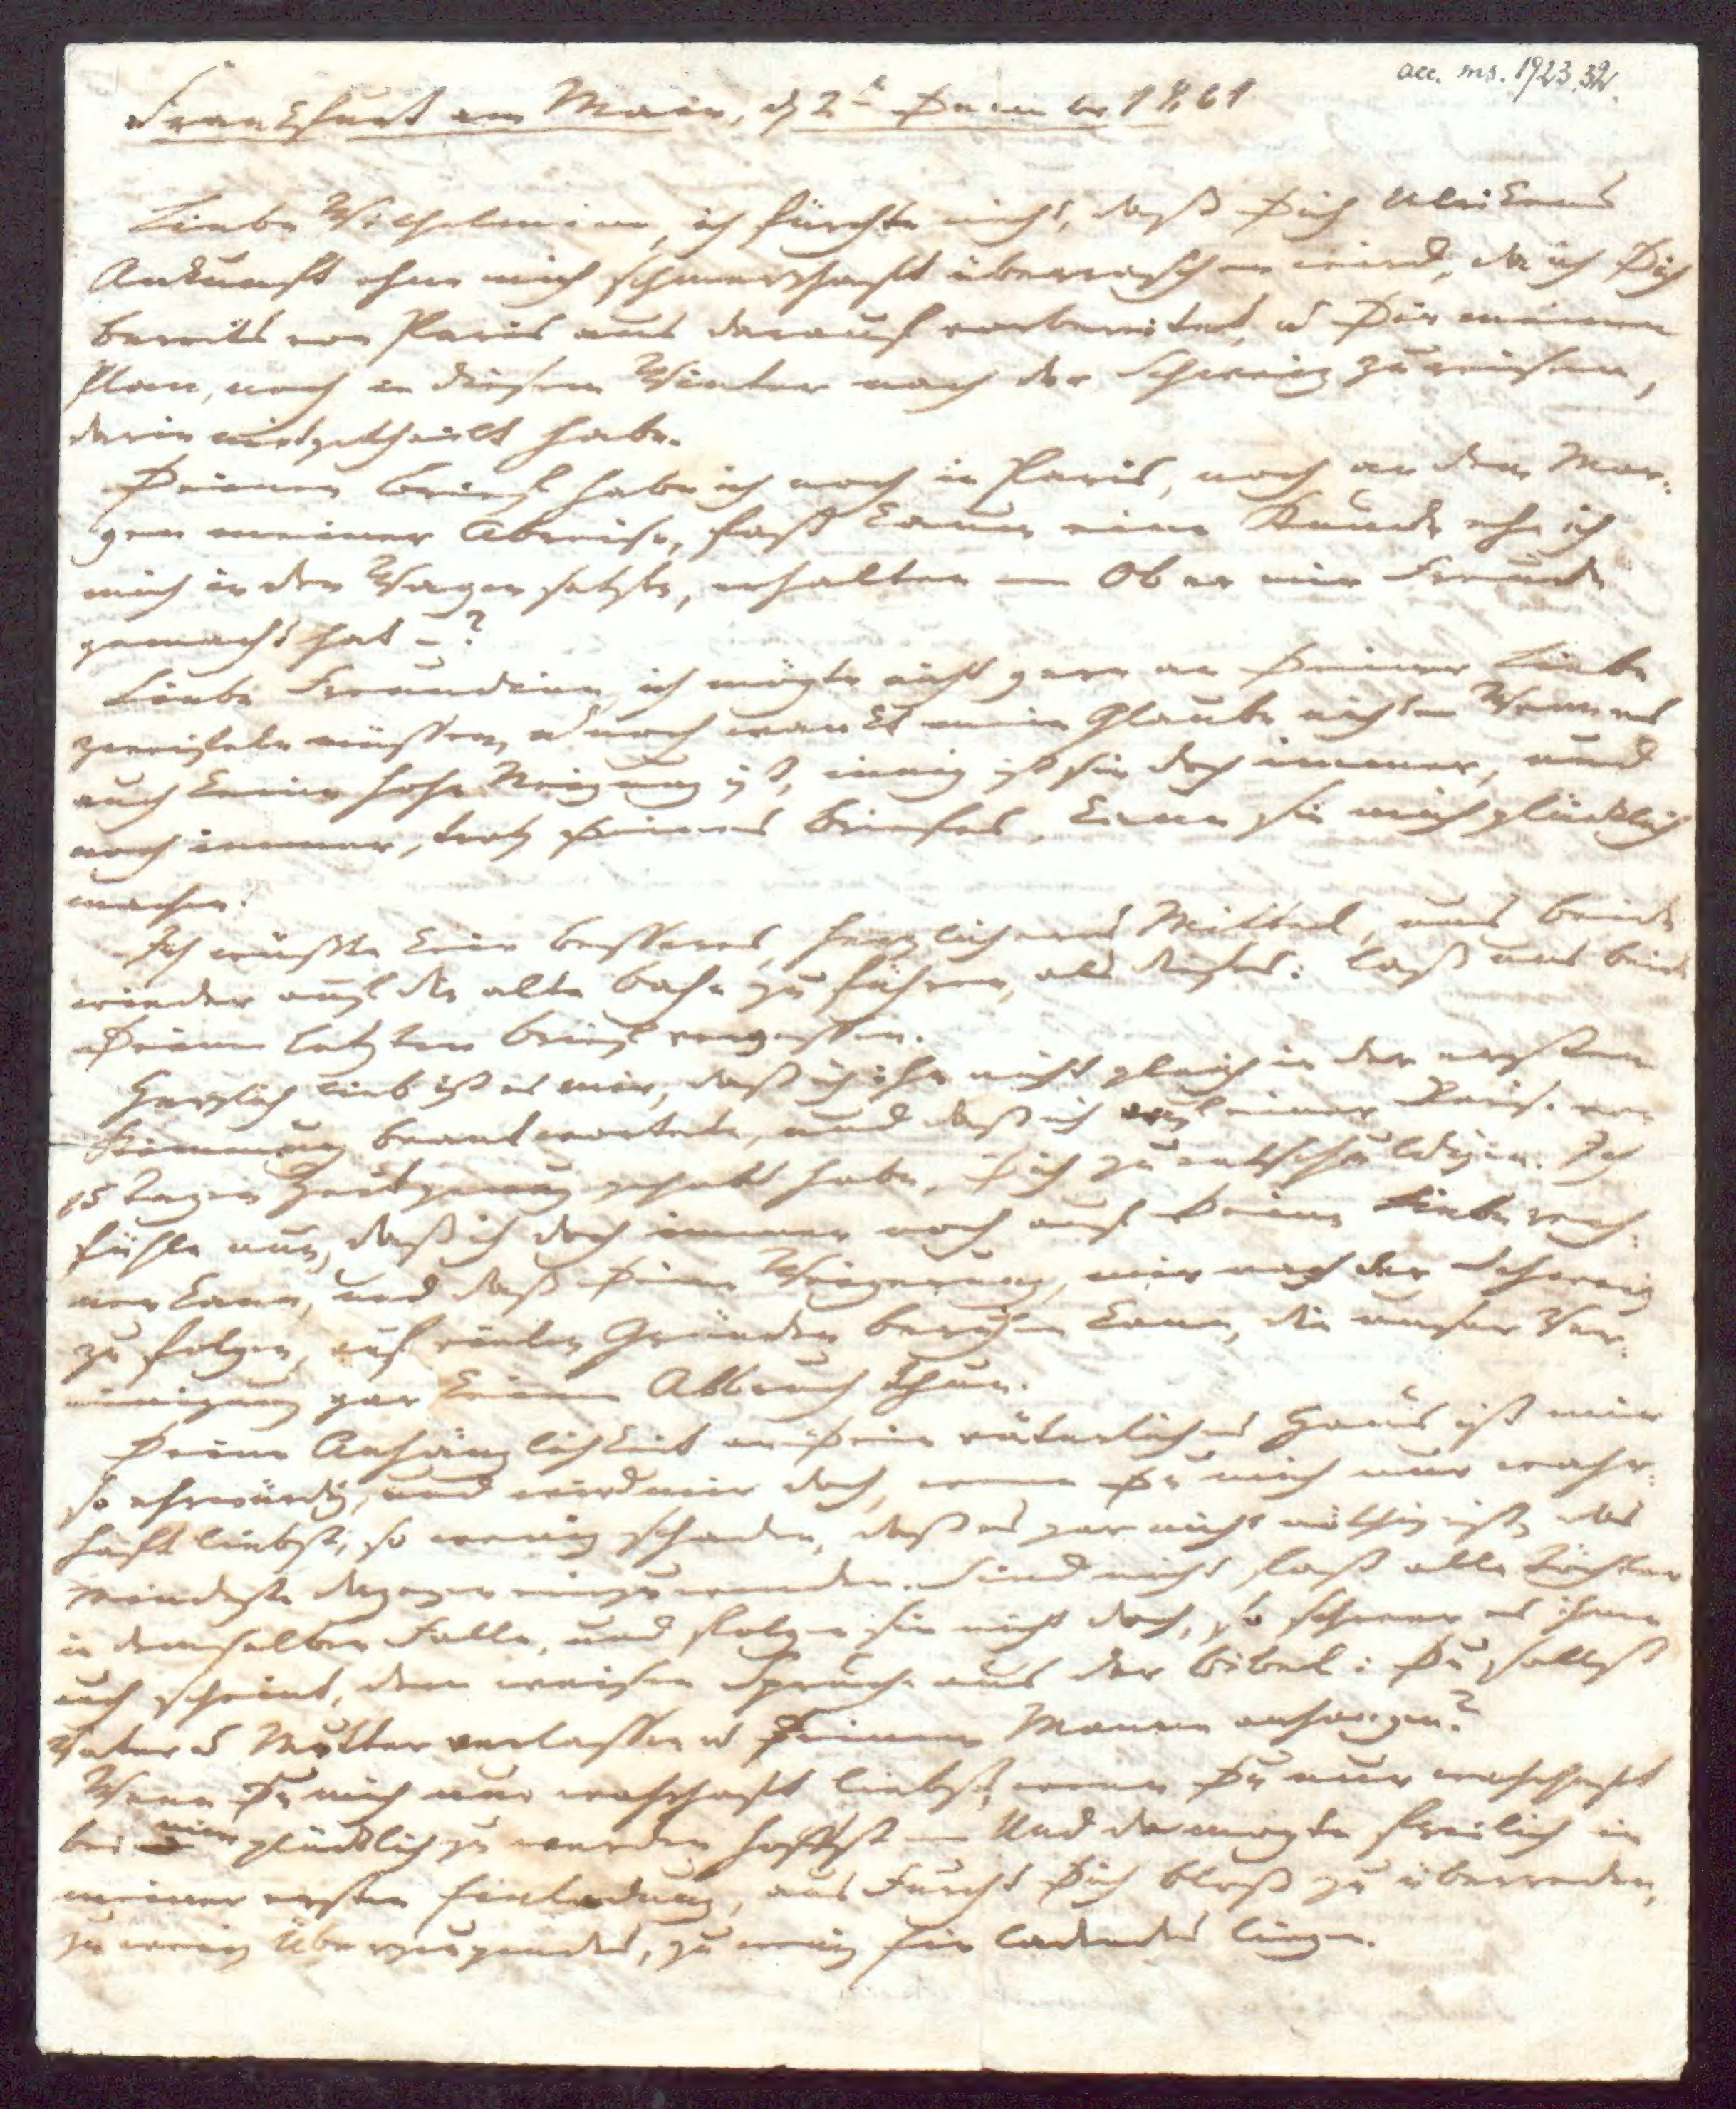 acc. ms. 1923.32.
Frankfurt am Main, d 2t December 1801
Liebe Wilhelmine, ich fürchte nicht, daß Dich Ulrikens
Ankunft ohne mich schmerzhaft überraschen wird, da ich Dich
bereits von Paris aus darauf vorbereitet, u Dir meinen
Plan, noch in diesem Winter nach der Schweiz zu reisen,
darin mitgetheilt habe.
Deinen Brief habe ich noch in Paris, noch an dem Mor-
gen meiner Abreise, fast kaum eine Stunde ehe ich
mich in den Wagen setzte, erhalten — Ob er mir Freude
gemacht hat –?
Liebe Freundinn, ich mögte nicht gern an Deiner Liebe
zweifeln müssen, u noch wankt mein Glaube nicht — Wenn es
auch keine hohe Neigung ist, innig ist sie doch immer, und
noch immer, trotz Deines Briefes, kann sie mich glücklich
machen.
Ich wüßte kein besseres, herzlicheres Mittel, uns beide
wieder auf die alte Bahn zu führen, als dieses: laß uns beide
Deinen letzten Brief vergessen.
Herzlich lieb ist es mir, daß ich ihn nicht gleich in der ersten
Stimmung beantwortete, und daß ich auf einer Reise von
15 Tagen Zeit genug gehabt habe, Dich zu entschuldigen. Ich
fühle nun, daß ich doch immer noch auf Deine Liebe rech-
nen kann, und daß Deine Weigerung, mir nach der Schweiz
zu folgen, auf vielen Gründen beruhen kann, die unsrer Ver-
einigung gar keinen Abbruch thun.
Deine Anhänglichkeit an Dein väterliches Haus ist mir
so ehrwürdig, und wird mir doch, wenn Du mich nur wahr-
haft liebst, so wenig schaden, daß es gar nicht nöthig ist, das
mindeste dagegen einzuwenden. Sind nicht fast alle Töchter
in demselben Falle, und folgen sie nicht doch, so schwer es ihnen
auch scheint, dem weisen Spruche aus der Bibel: Du sollst
Vater u Mutter verlassen u Deinem Manne anhangen?
Wenn Du mich nur wahrhaft liebst, wenn Du nur wahrhaft
bei mir glücklich zu werden hoffst — Und da mogte freilich in
meiner ersten Einladung, aus Furcht Dich bloß zu überreden,
zu wenig Überzeugendes, zu wenig Einladendes liegen.